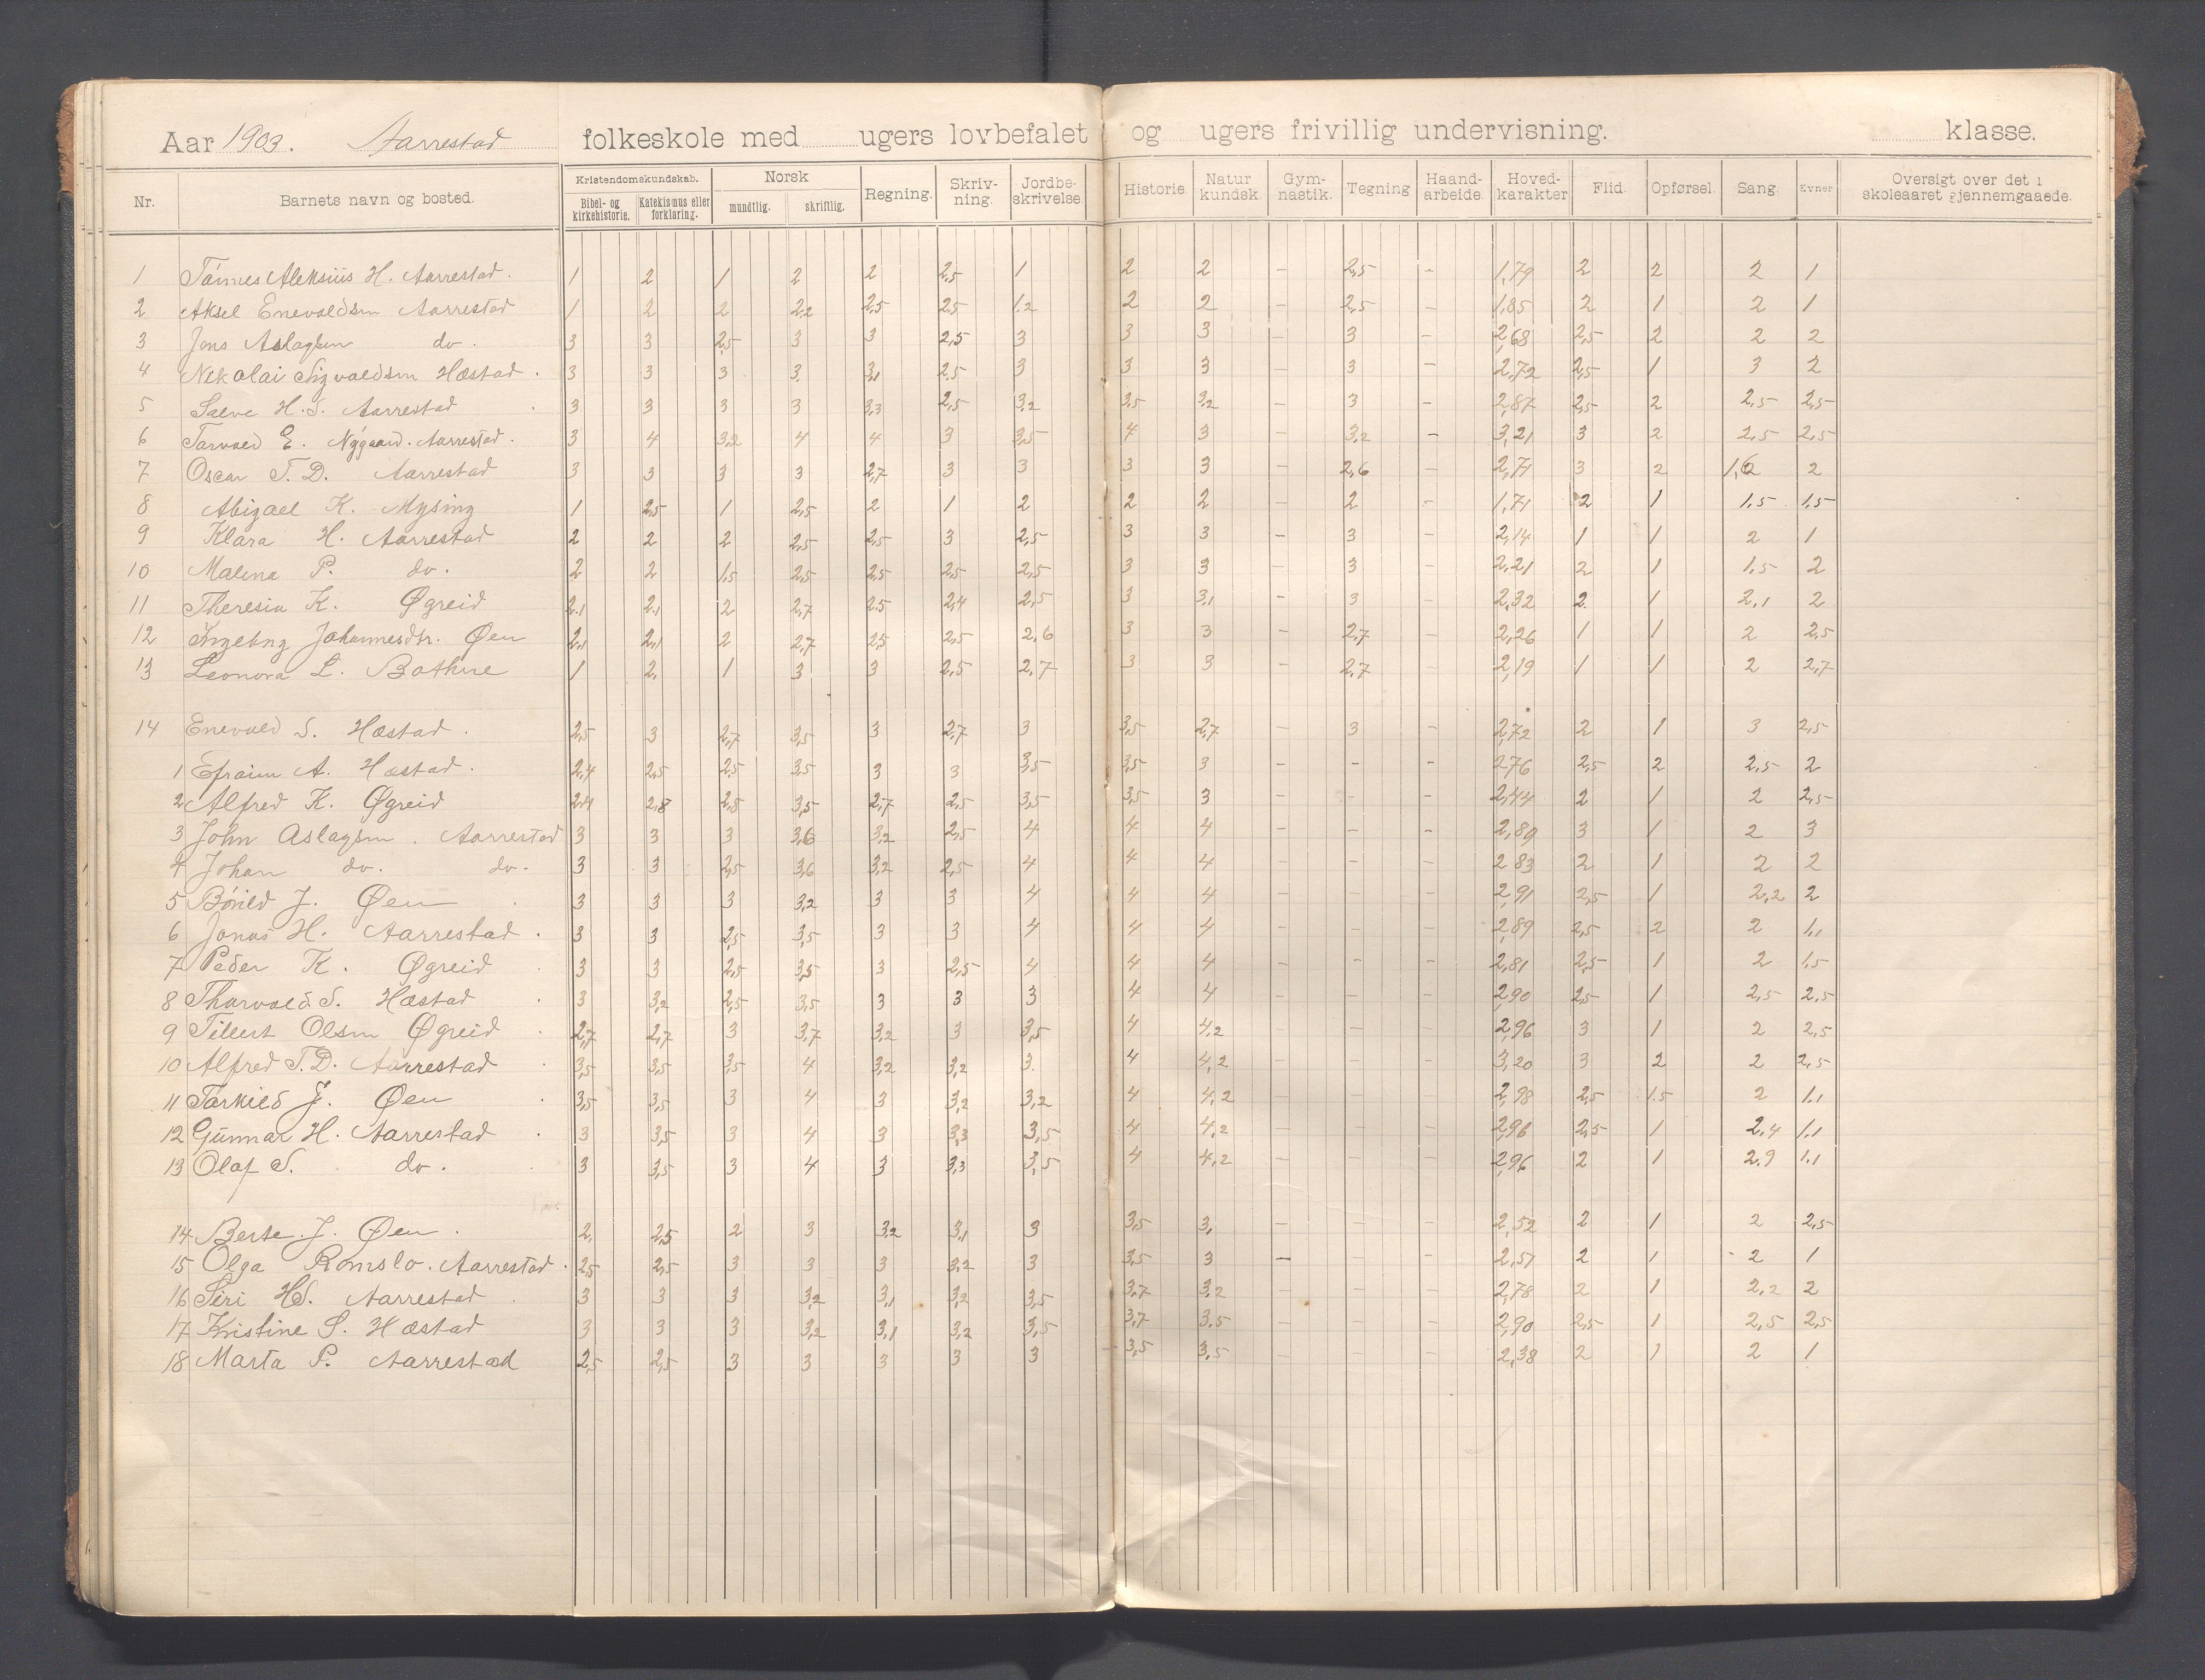 Aar 1903. Aarrestad folkeskole med ugers lovbefalet og ugers frivillig undervisning. klasse.
Nr. Barnets navn og bosted. Kristendomskundskab. Bibel- og kirkehistorie. Katekismus eller forklaring. Norsk mundtlig. skriftlig. Regning. Skriv-ning. Jordbe-skrivelse. Historie. Natur kundsk. Gym-nastik. Tegning Haand-arbeide. Hoved-karakter Flid. Opførsel. Sang. Evner Oversigt over det i skoleaaret gjennemgaaede.
1 Tønnes Aleksius H. Aarrestad. 1 2 1 2 2 2,5 1 2 2 - 2,5 - 1,79 2 2 2 1
2 Aksel Enevoldsen Aarrestad 1 2 2 2,2 2,5 2,5 1.2 2 2 - 2,5 - 1,85 2 1 2 1
3 Jens Aslagsen do. 3 3 2,5 3 3 2,5 3 3 3 - 3 - 2,68 2,5 2 2 2
4 Nikolai Sigvaldsen Hæstad. 3 3 3 3 3,1 2,5 3 3 3 - 3 - 2,72 2,5 1 3 2
5 Salve H. S. Aarrestad 3 3 3 3 3,3 2,5 3,2 3,5 3,2 - 3 - 2,87 2,5 2 2,5 2,5
6 Torvald E. Nygaard. Aarrestad. 3 4 3,2 4 4 3 3,5 4 3 - 3,2 - 3,21 3 2 2,5 2,5
7 Oscar T. D. Aarrestad 3 3 3 3 2,7 3 3 3 3 - 2,6 - 2,71 3 2 1,6 2
8 Abigael K. Mysing 1 2,5 1 2,5 2 1 2 2 2 - 2 - 1,71 2 1 1,5 1,5
9 Klara H. Aarrestad 2 2 2 2,5 2,5 3 2,5 3 3 - 3 - 2,14 1 1 2 1
10 Malena P. do. 2 2 1,5 2,5 2,5 2,5 2,5 3 3 - 3 - 2,21 2 1 1,5 2
11 Theresia K. Øgreid 2,1 2,1 2 2,7 2.5 2,4 2,5 3 3,1 - 3 - 2,32 2 1 2,1 2
12 Ingeborg Johannesdtr. Øen 2,1 2,1 2 2,7 2,5 2,5 2,6 3 3 - 2,7 - 2,26 1 1 2 2,5
13 Leonora L. Bothne 1 2, 1 3 3 2,5 2,7 3 3 - 2,7 - 2,19 1 1 2 2,7
14 Enevald S. Hæstad. 2,5 3 2,7 3,5 3 2,7 3 3,5 2,7 - 3 - 2,72 2 1 3 2,5
1 Efraim A. Hæstad. 2,4 2,5 2,5 3,5 3 3 3,5 3,5 3 - - - 2,76 2,5 2 2,5 2
2 Alfred K. Øgreid 2,4 2,8 2,8 3,5 2,7 2,5 3,5 3,5 3 - - - 2,44 2 1 2 2,5
3 John Aslagsen. Aarrestad 3 3 3 3,6 3,2 2,5 4 4 4 - - - 2,89 3 1 2 3
4 Johan do. do. 3 3 2,5 3,6 3,2 2,5 4 4 4 - - - 2 83 2 1 2 2
5 Bårild J. Øen 3 3 3 3,2 3 3 4 4 4 - - - 2,91 2,5 1 2,2 2
6 Jonas H. Aarrestad. 3 3 2,5 3,5 3 3 4 4 4 - - - 2,89 2,5 2 2 1,1
7 Peder K. Øgreid 3 3 2,5 3,5 3 2,5 4 4 4 - - - 2,81 2,5 1 2 1,5
8 Thorvald. S. Hæstad 3 3,2 2,5 3,5 3 3 3 4 4 - - - 2,90 2,5 1 2,5 2,5
9 Tillert Olsen Øgreid 2,7 2,7 3 3,7 3,2 3 3,5 4 4,2 - - - 2,96 3 1 2 2,5
10 Alfred T. D. Aarrestad 3,5 3,5 3,5 4 3,2 3,2 3. 4 4,2 - - - 3,20 3 2 2 2,5
11 Torkild J. Øen 3,5 3,5 3 4 3 3,2 3,2 4 4,2 - - - 2,98 2,5 1.5 2 1,1
12 Gunnar H. Aarrestad 3 3,5 3 4 3 3,3 3,5 4 4,2 - - - 2,96 2,5 1 2,4 1,1
13 Olaf S. do. 3 3,5 3 4 3 3,3 3,5 4 4,2 - - - 2,96 2 1 2.9 1,1
14 Berte. J. Øen. 2, 2,5 2 3 3,2 3,1 3 3,5 3, - - - 2,52 2 1 2 2,5
15 Olga Romslo. Aarrestad. 2,5 2,5 3 3 3 3,2 3 3,5 3 - - - 2,51 2 1 2 1
16 Siri HS. Aarrestad 3 3 3 3,2 3,1 3,2 3,5 3,7 3,2 - - - 2,78 2 1 2,2 2
17 Kristine S. Hæstad 3 3 3 3,2 3,1 3,2 3,5 3,7 3,5 - - - 2,90 2,5 1 2,5 2,5
18 Marta P. Aarrestad 2,5 2,5 3 3 3 3 3 3,5 3,5 - - - 2,38 2 1 2 1